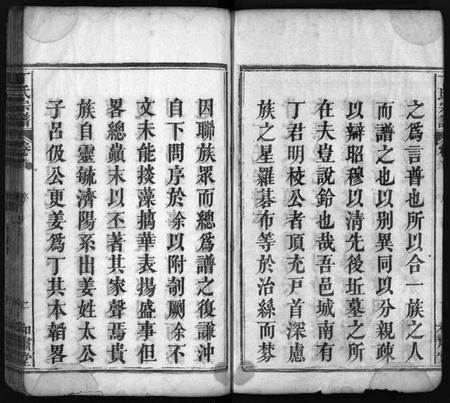 之爲言普也所以合一族之人
而譜之也以别異同以分親疎
以辯昭穆以清先後坵墓之所
在夫豈說鈴也哉吾邑城南有
丁君明校公者頂充戸首深慮
族之星羅碁布等於治絲而棼
因聯族眾而總爲譜之復謙沖
自下問序於余以附剞劂余不
文未能掞藻摛華表揚盛事但
畧總蕞末以丕著其家聲焉貴
族自靈毓濟陽系出姜姓太公
子呂伋公更姜爲丁其本韜畧
氏宗譜